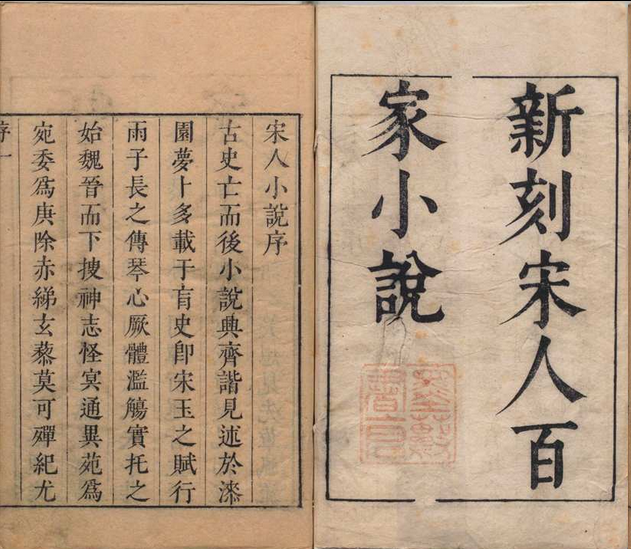 新刻宋人百
家小說
宋人小說序
古史亡而後小說興齊諧見述於漆
園夢卜多載于盲史卽宋玉之賦行
雨子長之傳琴心厥體濫觴實托之
始魏晉而下搜神志怪冥通異苑爲
宛委爲庚除赤綈玄藜莫可殫紀尤
序一